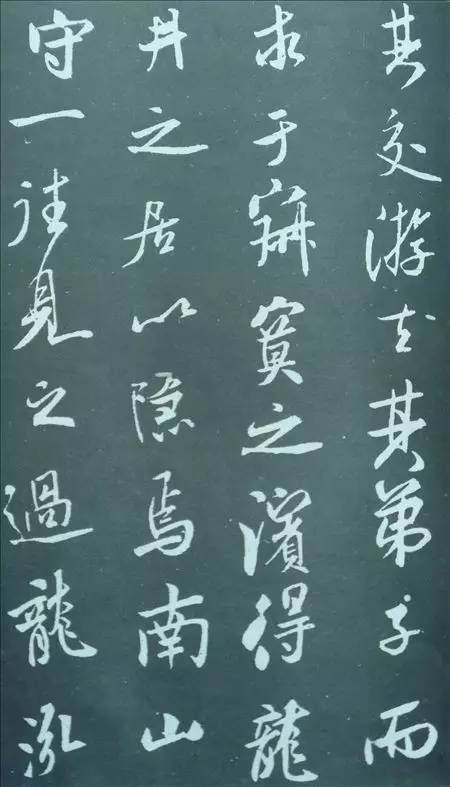 其交游去其弟子而
求于寂寞之濱得龍
井之居以隱焉南山
守一往見之過龍泓